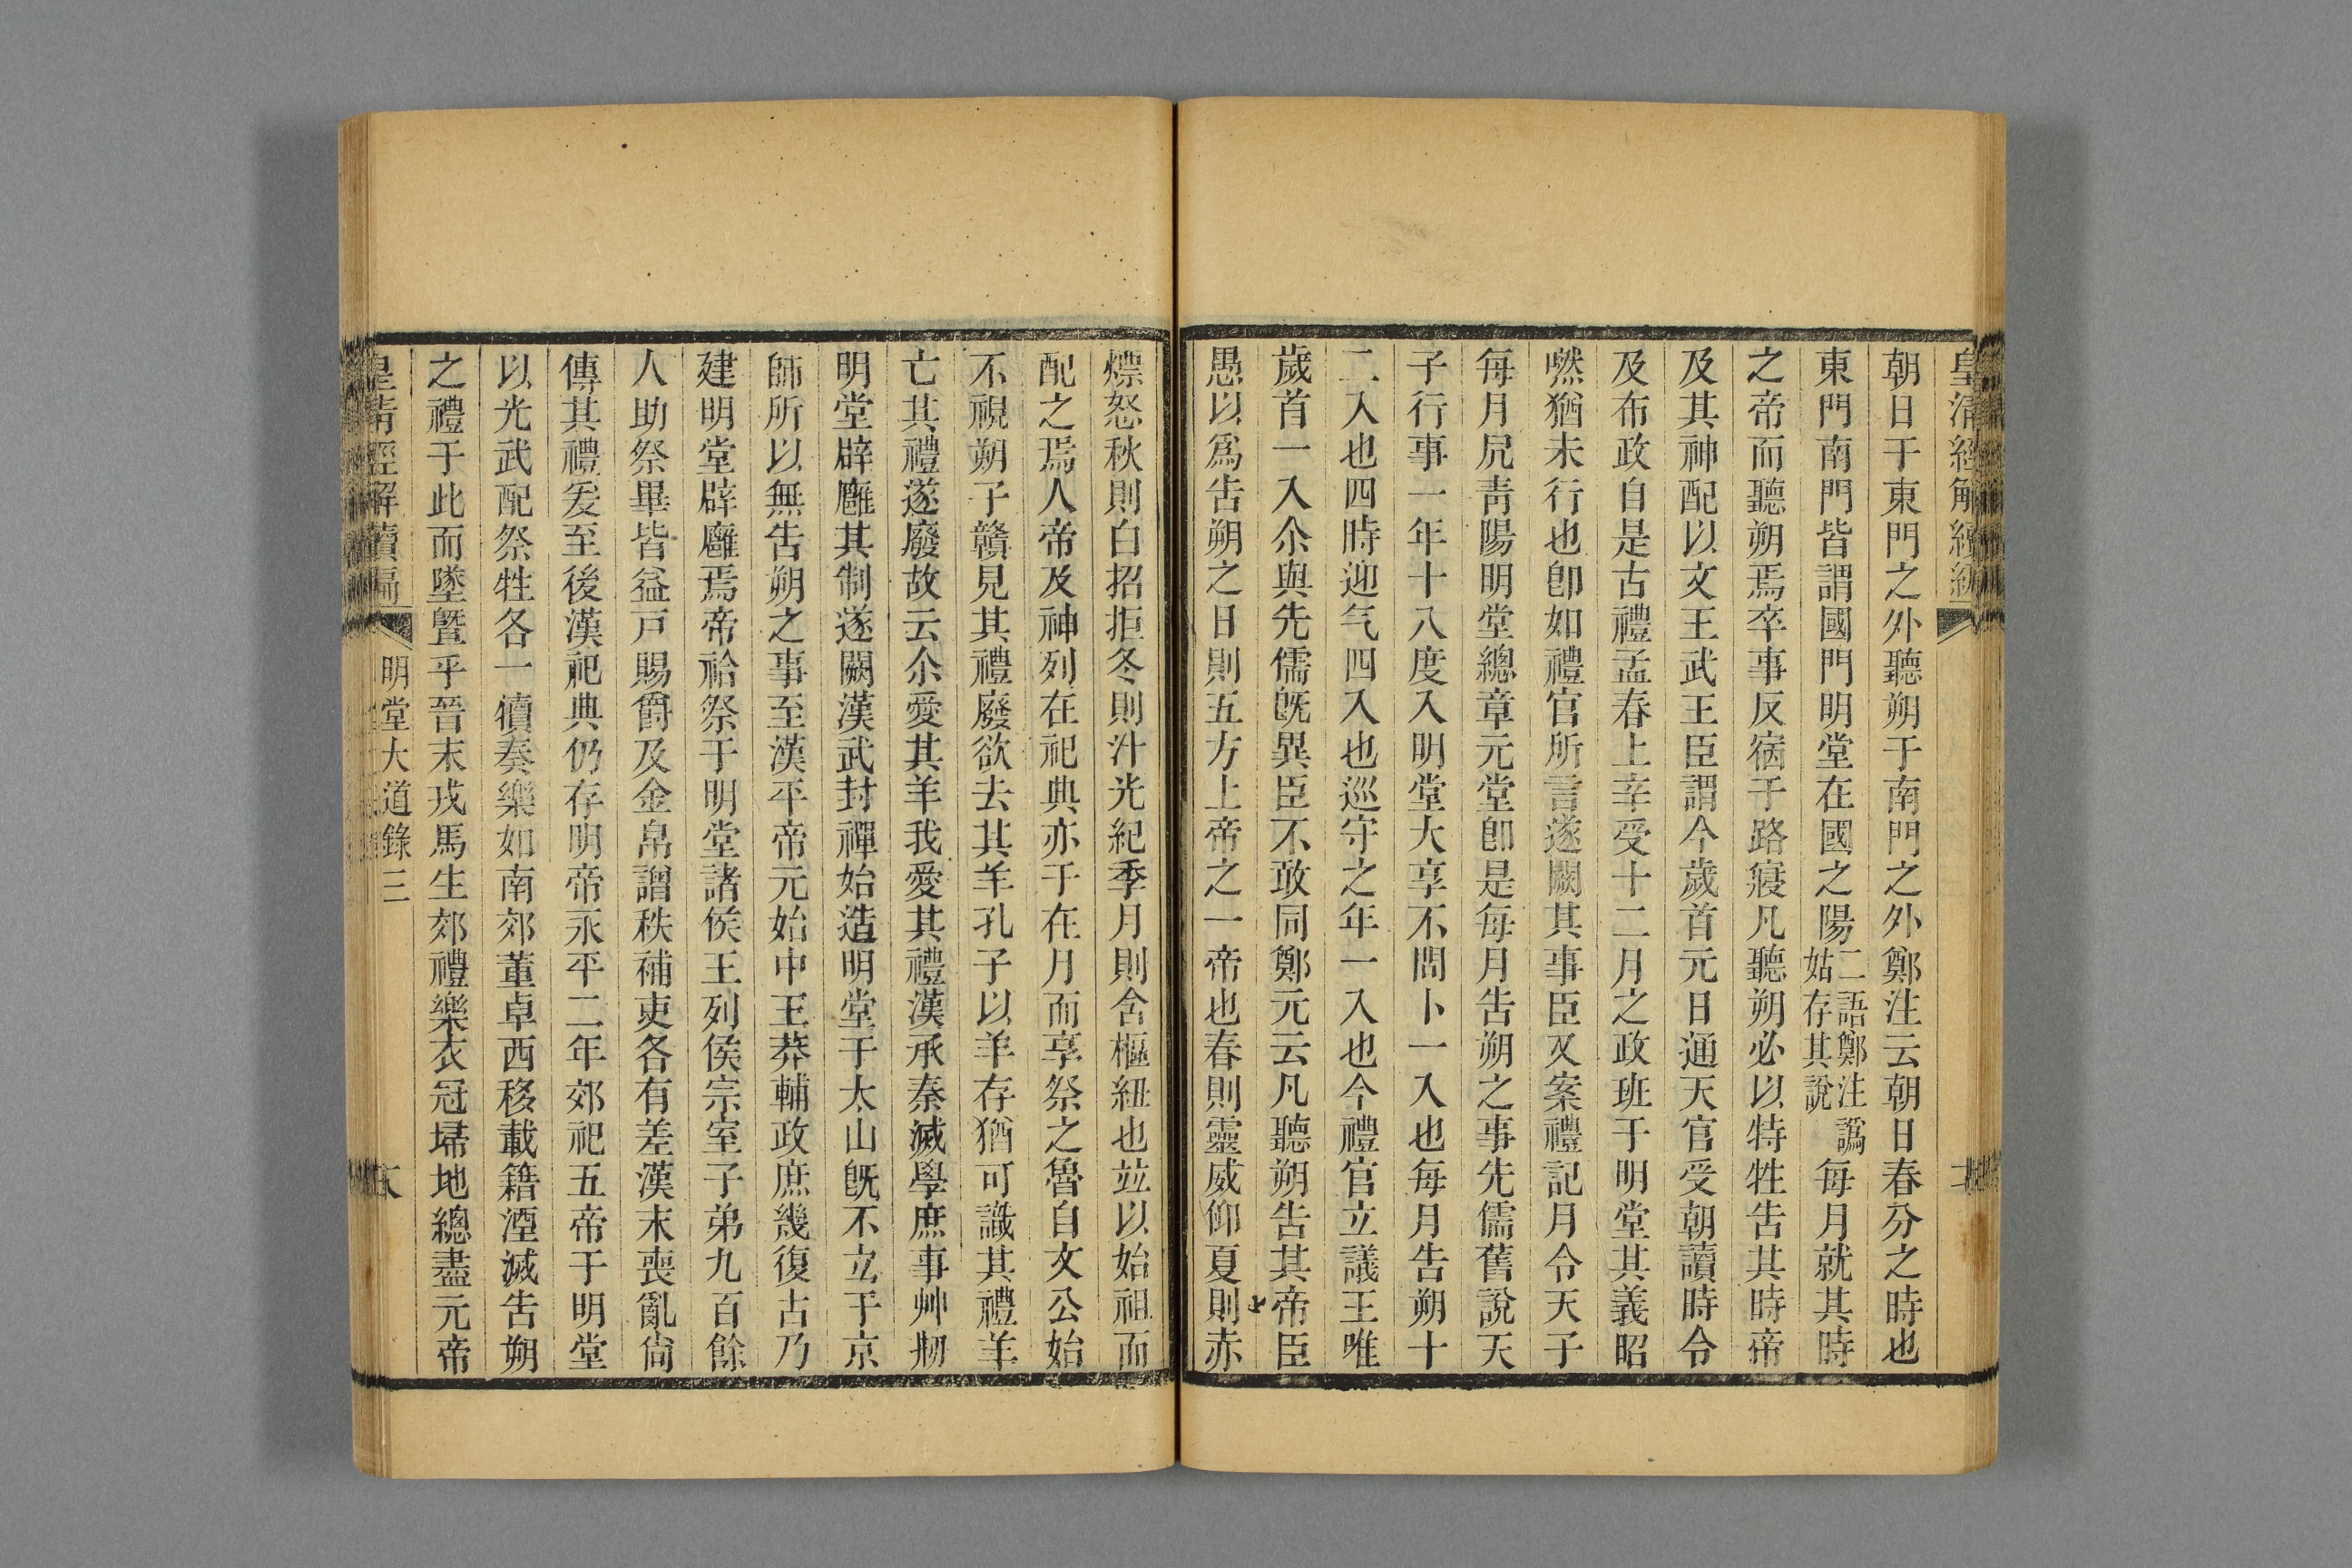 皇清經解續編
朝日于東門之外聽朔于南門之外鄭注云朝日春分之時也
東門南門皆謂國門明堂在國之陽二語鄭注譌姑存其說每月就其時
之帝而聽朔焉卒事反宿于路寢凡聽朔必以特牲告其時帝
及其神配以文王武王臣謂今歲首元日通天官受朝讀時令
及布政自是古禮孟春上辛受十二月之政班于明堂其義昭
然猶未行也卽如禮官所言遂闕其事臣又案禮記月令天子
每月凥靑陽明堂總章元堂卽是每月告朔之事先儒舊說天
子行事一年十八度入明堂大享不問卜一入也每月告朔十
二入也四時迎气四入也巡守之年一入也今禮官立議王唯
歲首一入尒與先儒旣異臣不敢同鄭元云凡聽朔告其帝臣
愚以爲告朔之日則五方上帝之一帝也春則靈威仰夏則赤
熛怒秋則白招拒冬則汁光紀季月則含樞紐也竝以始祖而
配之焉人帝及神列在祀典亦于在月而享祭之魯自文公始
不視朔子贛見其禮廢欲去其羊孔子以羊存猶可識其禮羊
亡其禮遂廢故云尒愛其羊我愛其禮漢承秦滅學庶事艸刱
明堂辟廱其制遂闕漢武封禪始造明堂于太山旣不立于京
師所以無告朔之事至漢平帝元始中王莽輔政庶幾復古乃
建明堂辟廱焉帝祫祭于明堂諸侯王列侯宗室子弟九百餘
人助祭畢皆益戸賜爵及金帛譄秩補吏各有差漢末喪亂尙
傳其禮爰至後漢祀典仍存明帝永平二年郊祀五帝于明堂
以光武配祭牲各一犢奏樂如南郊董卓西移載籍湮滅告朔
之禮于此而墜曁乎晉末戎馬生郊禮樂衣冠埽地總盡元帝
皇清經解續編
明堂大道錄三